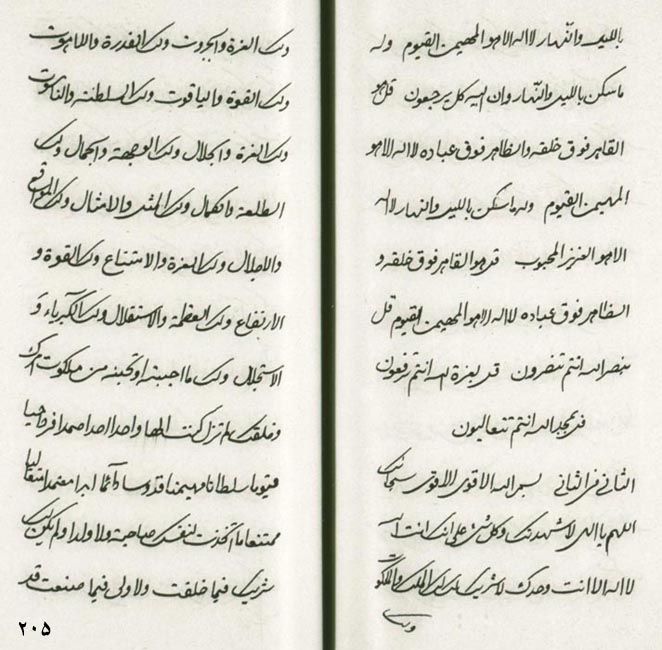 بالليل والنهار لا اله الا هو المهيمن القيوم وله
ما سكن بالليل والنهار وان اليه كل يرجعون قل هو
القاهر فوق خلقه والظاهر فوق عباده لا اله الا هو
المهيمن القيوم وله ما سكن بالليل والنهار لا اله
الا هو العزيز المحبوب قل هو القاهر فوق خلقه و
الظاهر فوق عباده لا اله الا هو المهيمن القيوم قل
بنصر الله انتم تنصرون قل بعزة الله انتم ترفعون
قل بمجد الله انتم تتعاليون
الثاني في الثاني بسم الله الاقوى الاقوى سبحانك
اللهم يا الهي لاشهدنك وكل شيء على انك انت الله
لا اله الا انت وحدك لا شريك لك لك الملك والملكوت
ولك
ولك العزة والجبروت ولك القدرة واللاهوت
ولك القوة والياقوت ولك السلطنة والناسوت
ولك العزة والجلال ولك الوجهة والجمال ولك
الطلعة والكمال ولك المثل والامثال ولك المواقع
والاجلال ولك العزة والامتناع ولك القوة و
الارتفاع ولك العظمة والاستقلال ولك الكبرياء و
الاستجلال ولك ما احببته او تحبنه من ملكوت امرك
وخلقك لم تزل كنت الها واحدا احدا صمدا فردا حيا
قيوما سلطانا مهيمنا قدوسا دائما ابدا معتمدا متعاليا
ممتنعا ما اتخذت لنفسك صاحبة ولا ولدا ولم يكن لك
شريك فيما خلقت ولا ولي فيما صنعت قد
٢٠٥